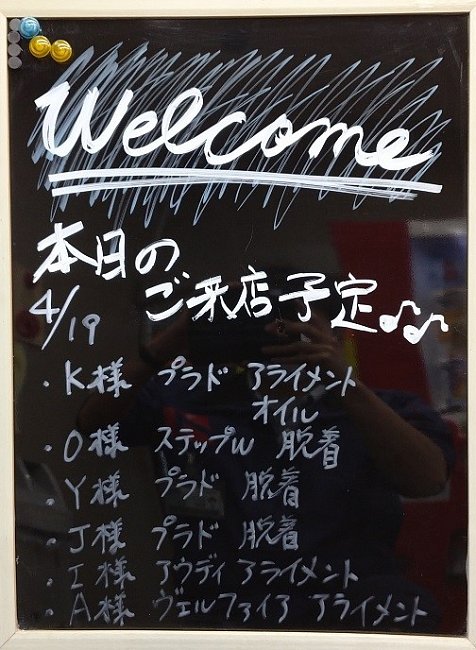 Welcome
本日の
ご来店予定♪♪
4/19
・K様 プラド アライメント
オイル
・O様 ステップW 脱着
・Y様 プラド 脱着
・J様 プラド 脱着
・I様 アウディ アライメント
・A様 ヴェルファイア アライメント